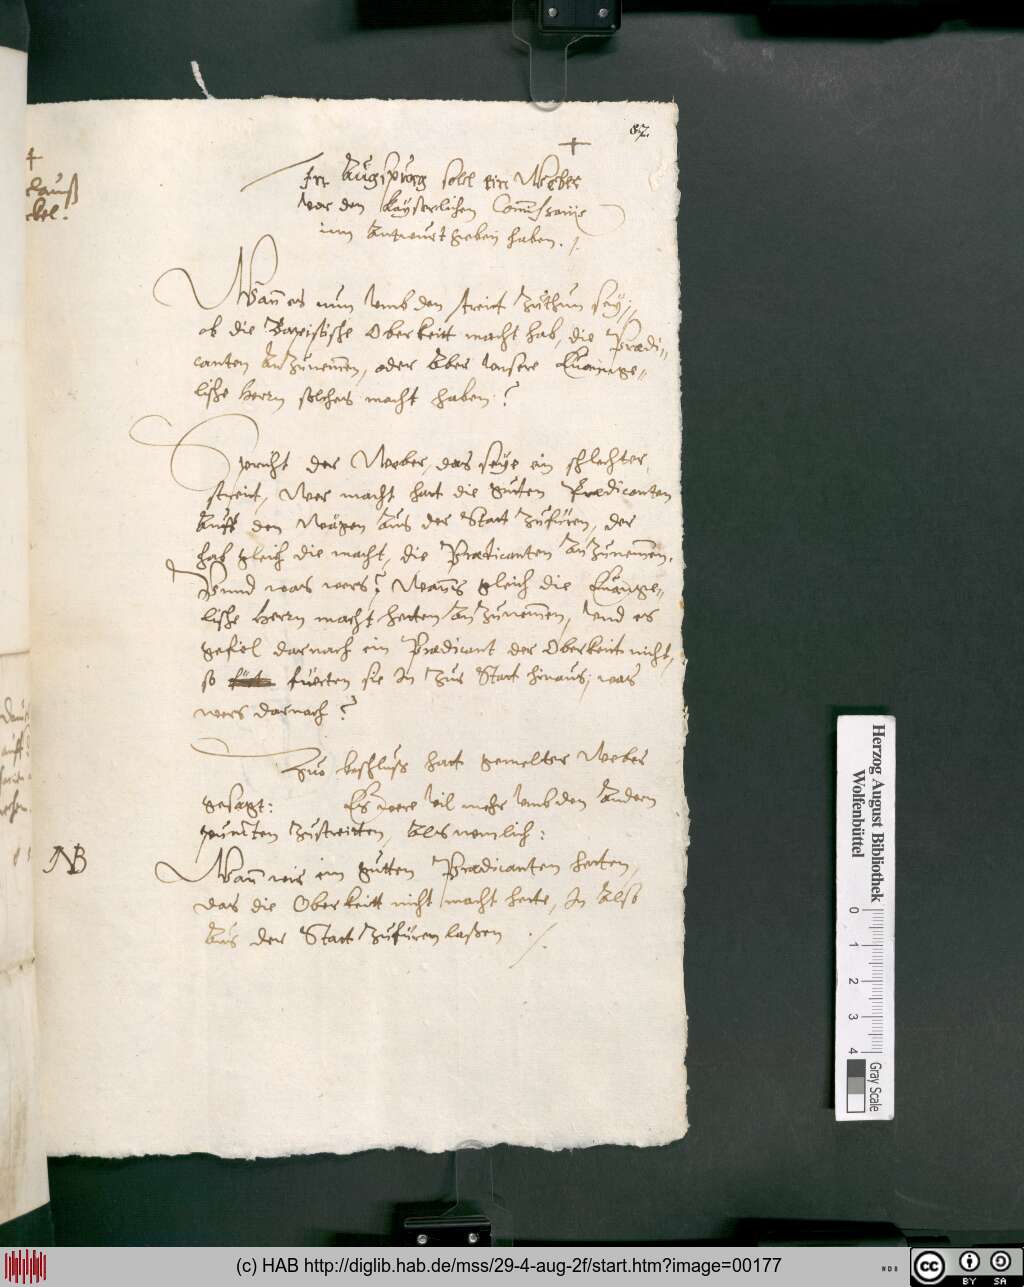 87.
In Augspurg soll ein Weber
vor den kayserlichen Commissarijs
ein Antwurt geben haben. /.
Wann es nun umb den streit zuthun sey;
ob die Papistische Oberkeitt macht hab, die Prædi-
canten anzunemen, oder aber unsere Euange-
lische Herrn solches macht haben?
Spricht der Weber, das seye ein schlechter
streit, Wer macht hatt die guten Prædicanten
auff den Wägen aus der Statt zufüren, der
hab gleich die macht, die Prædicanten anzunemen.
Unnd was wers? Wanns gleich die Euange-
lische Herrn macht hetten anzunemen, und es
gefiel darnach ein Prædicant der Oberkeit nicht,
so füerten sie In zur Statt hinaus, was
wers darnach?
Zuo beschluss hatt gemelter Weber
gesagt: Es were vil mehr umb den andern
puncten zustreitten, als nemlich:
NB
Wann wir ein gutten Prædicanten hetten,
das die Oberkeitt nicht macht hette, In also
aus der Statt zufüren lassen ./.
Herzog August Bibliothek
Wolfenbüttel
0 1 2 3 4
Gray Scale
(c) HAB http://diglib.hab.de/mss/29-4-aug-2f/start.htm?image=00177
WDB
cc BY SA